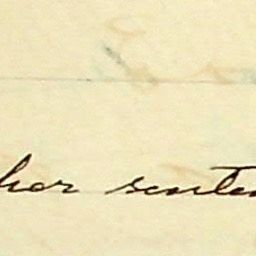 her senten